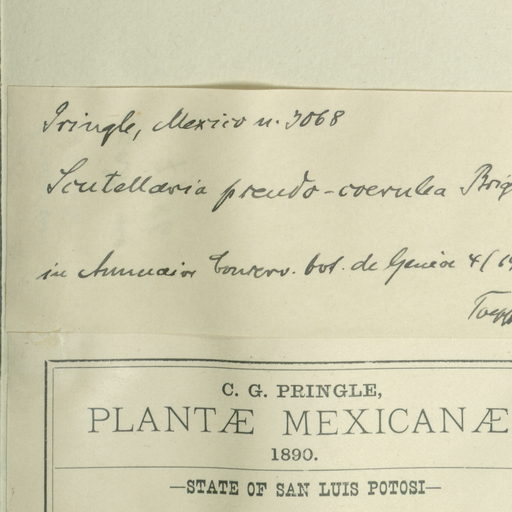 Pringle, Mexico n. 3068
Scutellaria pseudo-coerulea Briq
in Annuaire Conserv. bot. de Genève
C. G. PRINGLE,
PLANTÆ MEXICANÆ
1890.
—STATE OF SAN LUIS POTOSI—